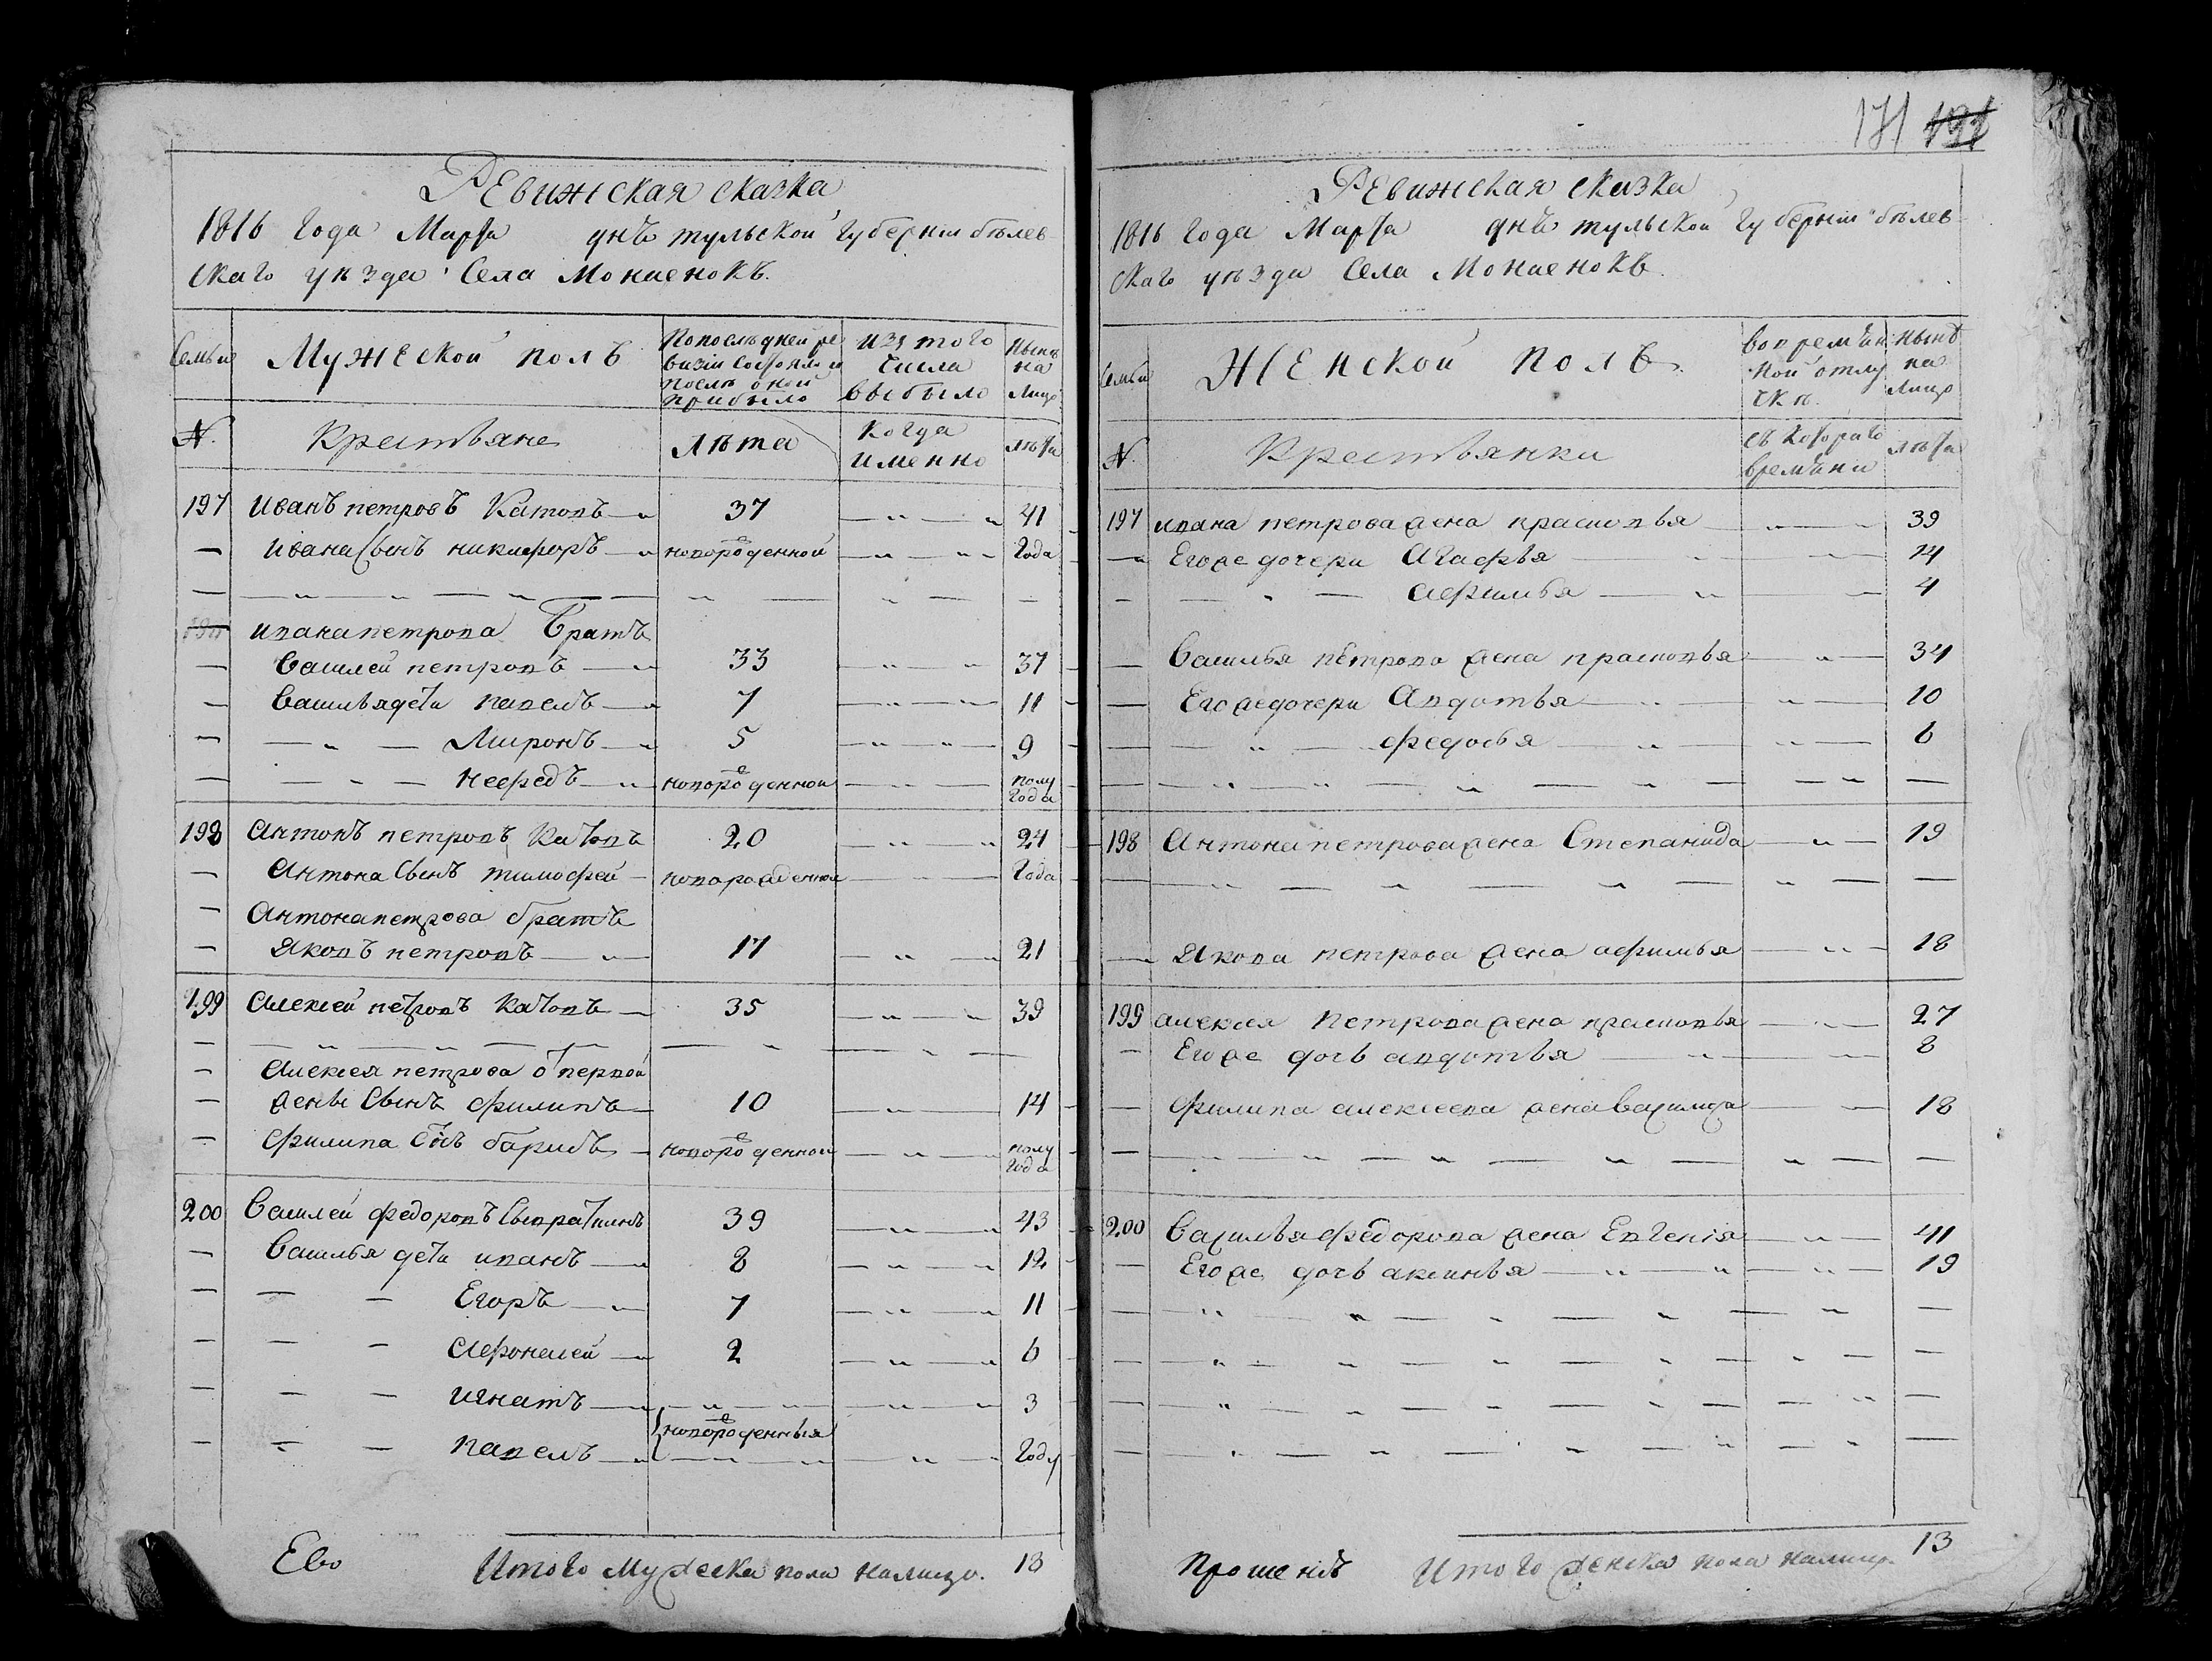 171 191
Ревижская сказка
1816 года Марта днѣ тульской губерніи бѣлев
скаго уѣзда Села Монаенокъ.
Семьи
Мужеской полъ
Попослѣдней ре
визіи состояло и
послѣ оной
прибыло
изъ того
числа
выбыло
Нынѣ
на
лицо
№.
Крестьяне
лѣта
Когда
именно
лѣта
197 Иванъ петровъ Катовъ 37 41
ивана Сынъ никифоръ новорожденной Года
ивана петрова Братъ
Василей петровъ 33 37
Васильядети павелъ 7 11
Миронъ 5 9
Нефедъ новорожденной полу
года
198 Антонъ петровъ Катовъ 20 24
Антона Сынъ тимофей новорожденной Года
Антонапетрова братъ
Яковъ петровъ 17 21
199 Алексей петровъ Катовъ 35 39
Алексея петрова от первой
жены Сынъ филипъ 10 14
Филипа Снъ барисъ новорожденной полу
года
200 Василей федоровъ 39 43
Василья дети иванъ 8 12
Егоръ 7 11
Афонасей 2 6
игнатъ 3
новорожденныя
павелъ Году
Ево Итого Мужеска пола налицо. 18
Ревижская сказка
1816 года Марта днѣ тульской губерніи бѣлев
скаго уѣзда Села Монаенокъ.
Семьи
Женской полъ.
вовремѧн
ной отлу
чкѣ.
Нынѣ
на
лицо
№.
Крестьянки
съ котораго
времѧни
лѣта
197 ивана петрова жена прасковья 39
Егоже дочери Агафья 14
афимья 4
Василья петрова жена прасковья 34
Егожедочери Авдотья 10
федосья 6
198 Антона петрова жена Степанида 19
Якова петрова жена афимья 18
199 алексея петрова жена прасковья 27
Егоже дочь авдотья 8
Филипа алексеева жена Василиса 18
200 Василья федорова жена Евгенія 41
Егоже дочь аксинья 19
Прошенъ Итого женска пола налицо 13